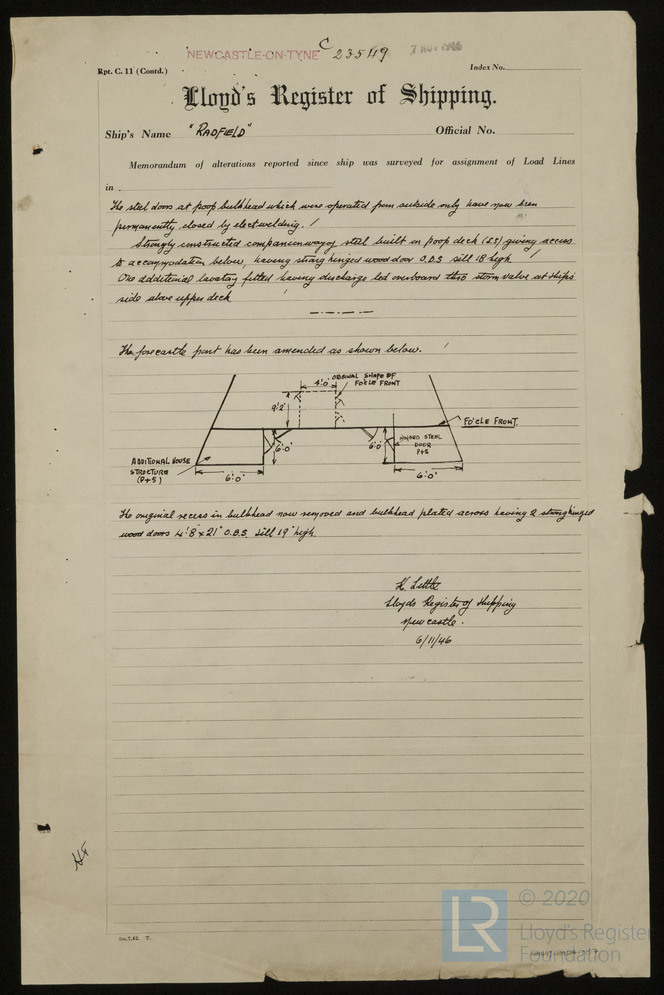 NEWCASTLE-ON-TYNE C 23549 7 NOV 1946
Rpt. C. 11 (Contd.) Index No.
Lloyd's Register of Shipping.
Ship's Name "RADFIELD" Official No.
Memorandum of alterations reported since ship was surveyed for assignment of Load Lines
in
The steel doors at poop bulkhead which were operated from outside only have now been
permanently closed by elect welding.
Strongly constructed companionway of steel built on poop deck (S.S) giving access
to accommodation below, having strong hinged wood door O.B.S sill 18" high
One additional lavatory fitted having discharge led overboard thro storm valve at ships
side above upper deck
The forecastle front has been amended as shown below.
ORIGINAL SHAPE OF
FO'CLE FRONT
4'.0"
9'.2"
FO'CLE FRONT.
6'.0"
6'.0"
HINGED STEEL
DOOR
P+S
ADDITIONAL HOUSE
STRUCTURE
(P+S)
6'.0"
6'.0"
The original recess in bulkhead now removed and bulkhead plated across having 2 strong hinged
wood doors 4'.8" x 21" O.B.S. sill 19" high.
K Little
Lloyds Register of Shipping
Newcastle.
6/11/46
2m.7,42. T.
LR
© 2020
Lloyd's Register
Foundation